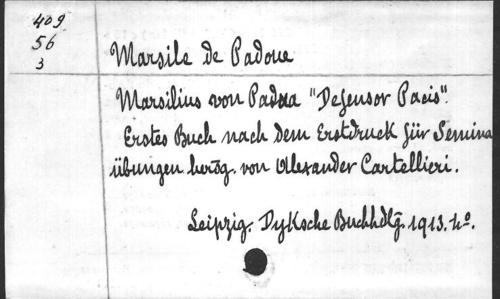 409
56
3
Marsile de Padoue
Marsilius von Padua "Defensor Pacis".
Erstes Buch nach dem Erstdruck für Semina
übungen herög. von Alexander Cartellieri.
Leipzig. Dyksche Buchhdlg. 1913. 4o.